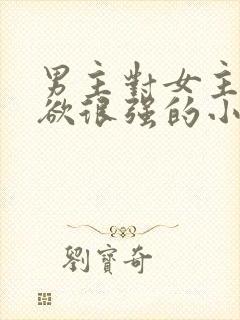 男主對女主
欲很强的小
劉寶奇